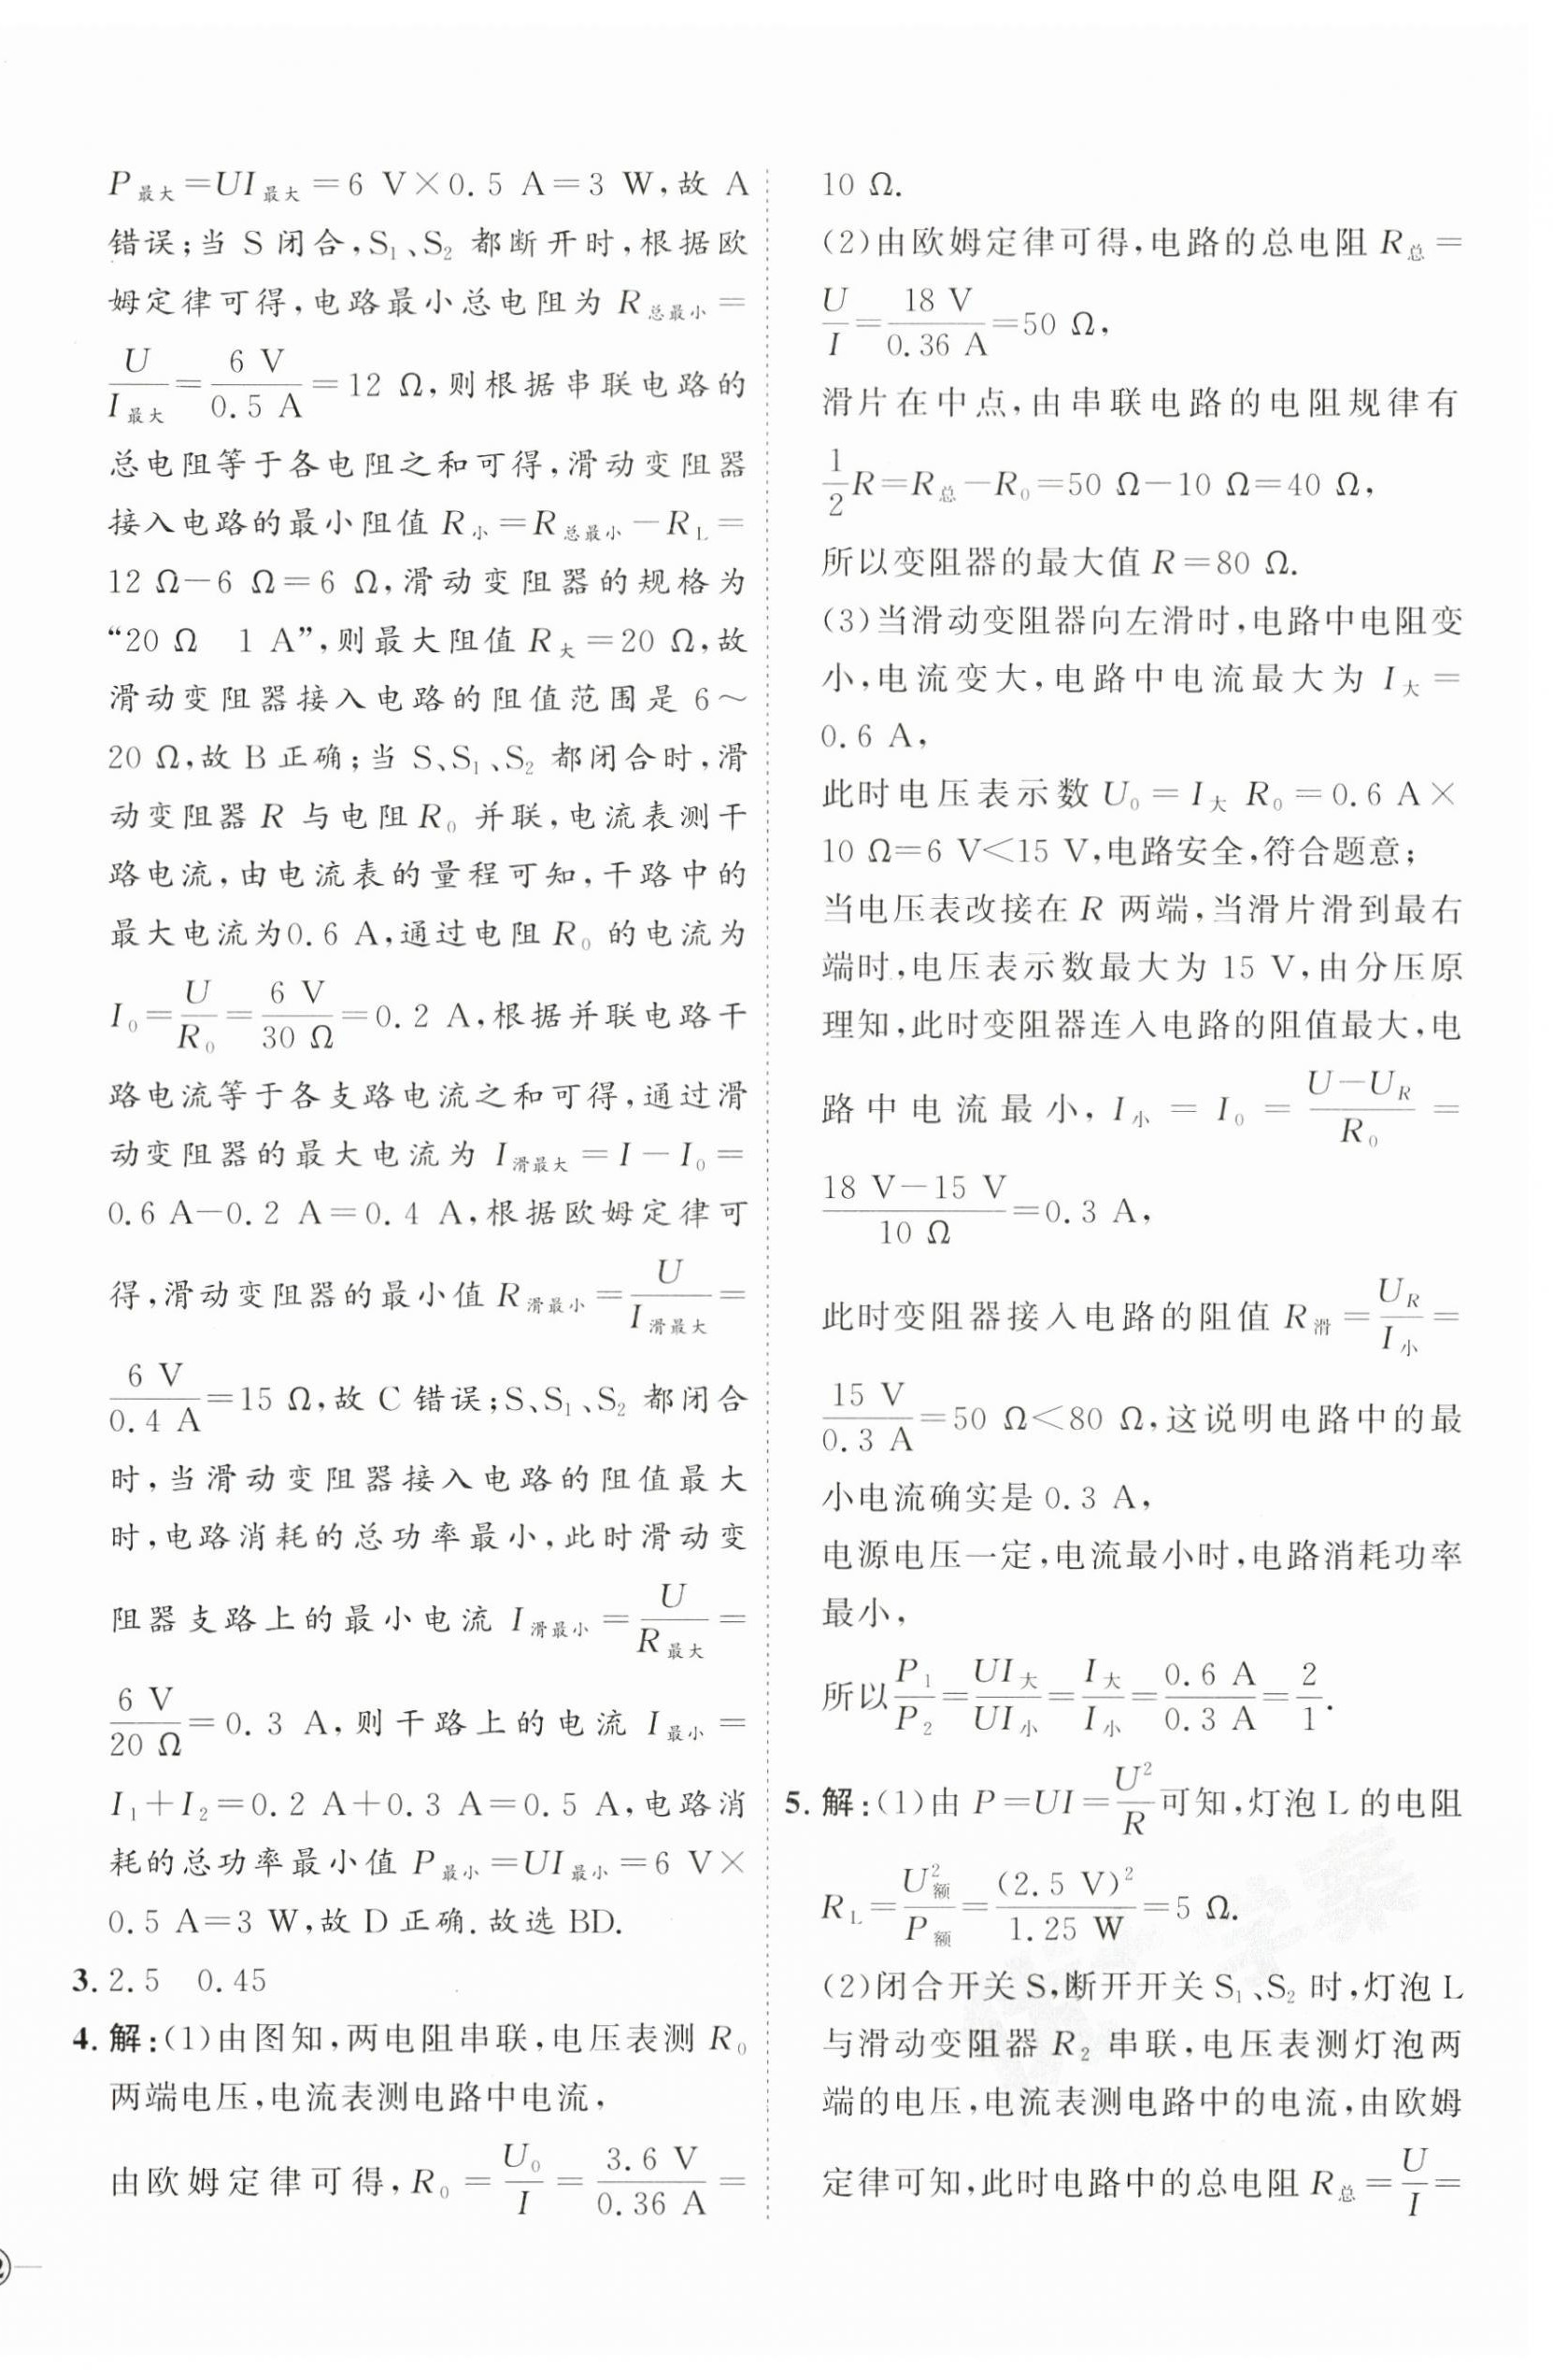 P最大=UI最大=6 V×0.5 A=3 W,故 A
错误;当 S 闭合,S₁、S₂ 都断开时,根据欧
姆定律可得,电路最小总电阻为 R总最小=
U/I最大=6 V/0.5 A=12 Ω,则根据串联电路的
总电阻等于各电阻之和可得,滑动变阻器
接入电路的最小阻值 R小=R总最小-R_L=
12 Ω-6 Ω=6 Ω,滑动变阻器的规格为
“20 Ω 1 A”,则最大阻值 R大=20 Ω,故
滑动变阻器接入电路的阻值范围是 6~
20 Ω,故 B 正确;当 S、S₁、S₂ 都闭合时,滑
动变阻器 R 与电阻 R₀ 并联,电流表测干
路电流,由电流表的量程可知,干路中的
最大电流为0.6 A,通过电阻 R₀ 的电流为
I₀=U/R₀=6 V/30 Ω=0.2 A,根据并联电路干
路电流等于各支路电流之和可得,通过滑
动变阻器的最大电流为 I滑最大=I-I₀=
0.6 A-0.2 A=0.4 A,根据欧姆定律可
得,滑动变阻器的最小值 R滑最小=U/I滑最大=
6 V/0.4 A=15 Ω,故 C 错误;S、S₁、S₂ 都闭合
时,当滑动变阻器接入电路的阻值最大
时,电路消耗的总功率最小,此时滑动变
阻器支路上的最小电流 I滑最小=U/R最大=
6 V/20 Ω=0.3 A,则干路上的电流 I最小=
I₁+I₂=0.2 A+0.3 A=0.5 A,电路消
耗的总功率最小值 P最小=UI最小=6 V×
0.5 A=3 W,故 D 正确.故选 BD.
3. 2.5 0.45
4. 解:(1)由图知,两电阻串联,电压表测 R₀
两端电压,电流表测电路中电流,
由欧姆定律可得,R₀=U₀/I=3.6 V/0.36 A=
10 Ω.
(2)由欧姆定律可得,电路的总电阻 R总=
U/I=18 V/0.36 A=50 Ω,
滑片在中点,由串联电路的电阻规律有
1/2R=R总-R₀=50 Ω-10 Ω=40 Ω,
所以变阻器的最大值 R=80 Ω.
(3)当滑动变阻器向左滑时,电路中电阻变
小,电流变大,电路中电流最大为 I大=
0.6 A,
此时电压表示数 U₀=I大 R₀=0.6 A×
10 Ω=6 V<15 V,电路安全,符合题意;
当电压表改接在 R 两端,当滑片滑到最右
端时,电压表示数最大为 15 V,由分压原
理知,此时变阻器连入电路的阻值最大,电
路中电流最小,I小=I₀=(U-U_R)/R₀=
(18 V-15 V)/10 Ω=0.3 A,
此时变阻器接入电路的阻值 R滑=U_R/I小=
15 V/0.3 A=50 Ω<80 Ω,这说明电路中的最
小电流确实是 0.3 A,
电源电压一定,电流最小时,电路消耗功率
最小,
所以P₁/P₂=UI大/UI小=I大/I小=0.6 A/0.3 A=2/1.
5. 解:(1)由 P=UI=U²/R可知,灯泡 L 的电阻
R_L=U²额/P额=(2.5 V)²/1.25 W=5 Ω.
(2)闭合开关 S,断开开关 S₁、S₂ 时,灯泡 L
与滑动变阻器 R₂ 串联,电压表测灯泡两
端的电压,电流表测电路中的电流,由欧姆
定律可知,此时电路中的总电阻 R总=U/I=